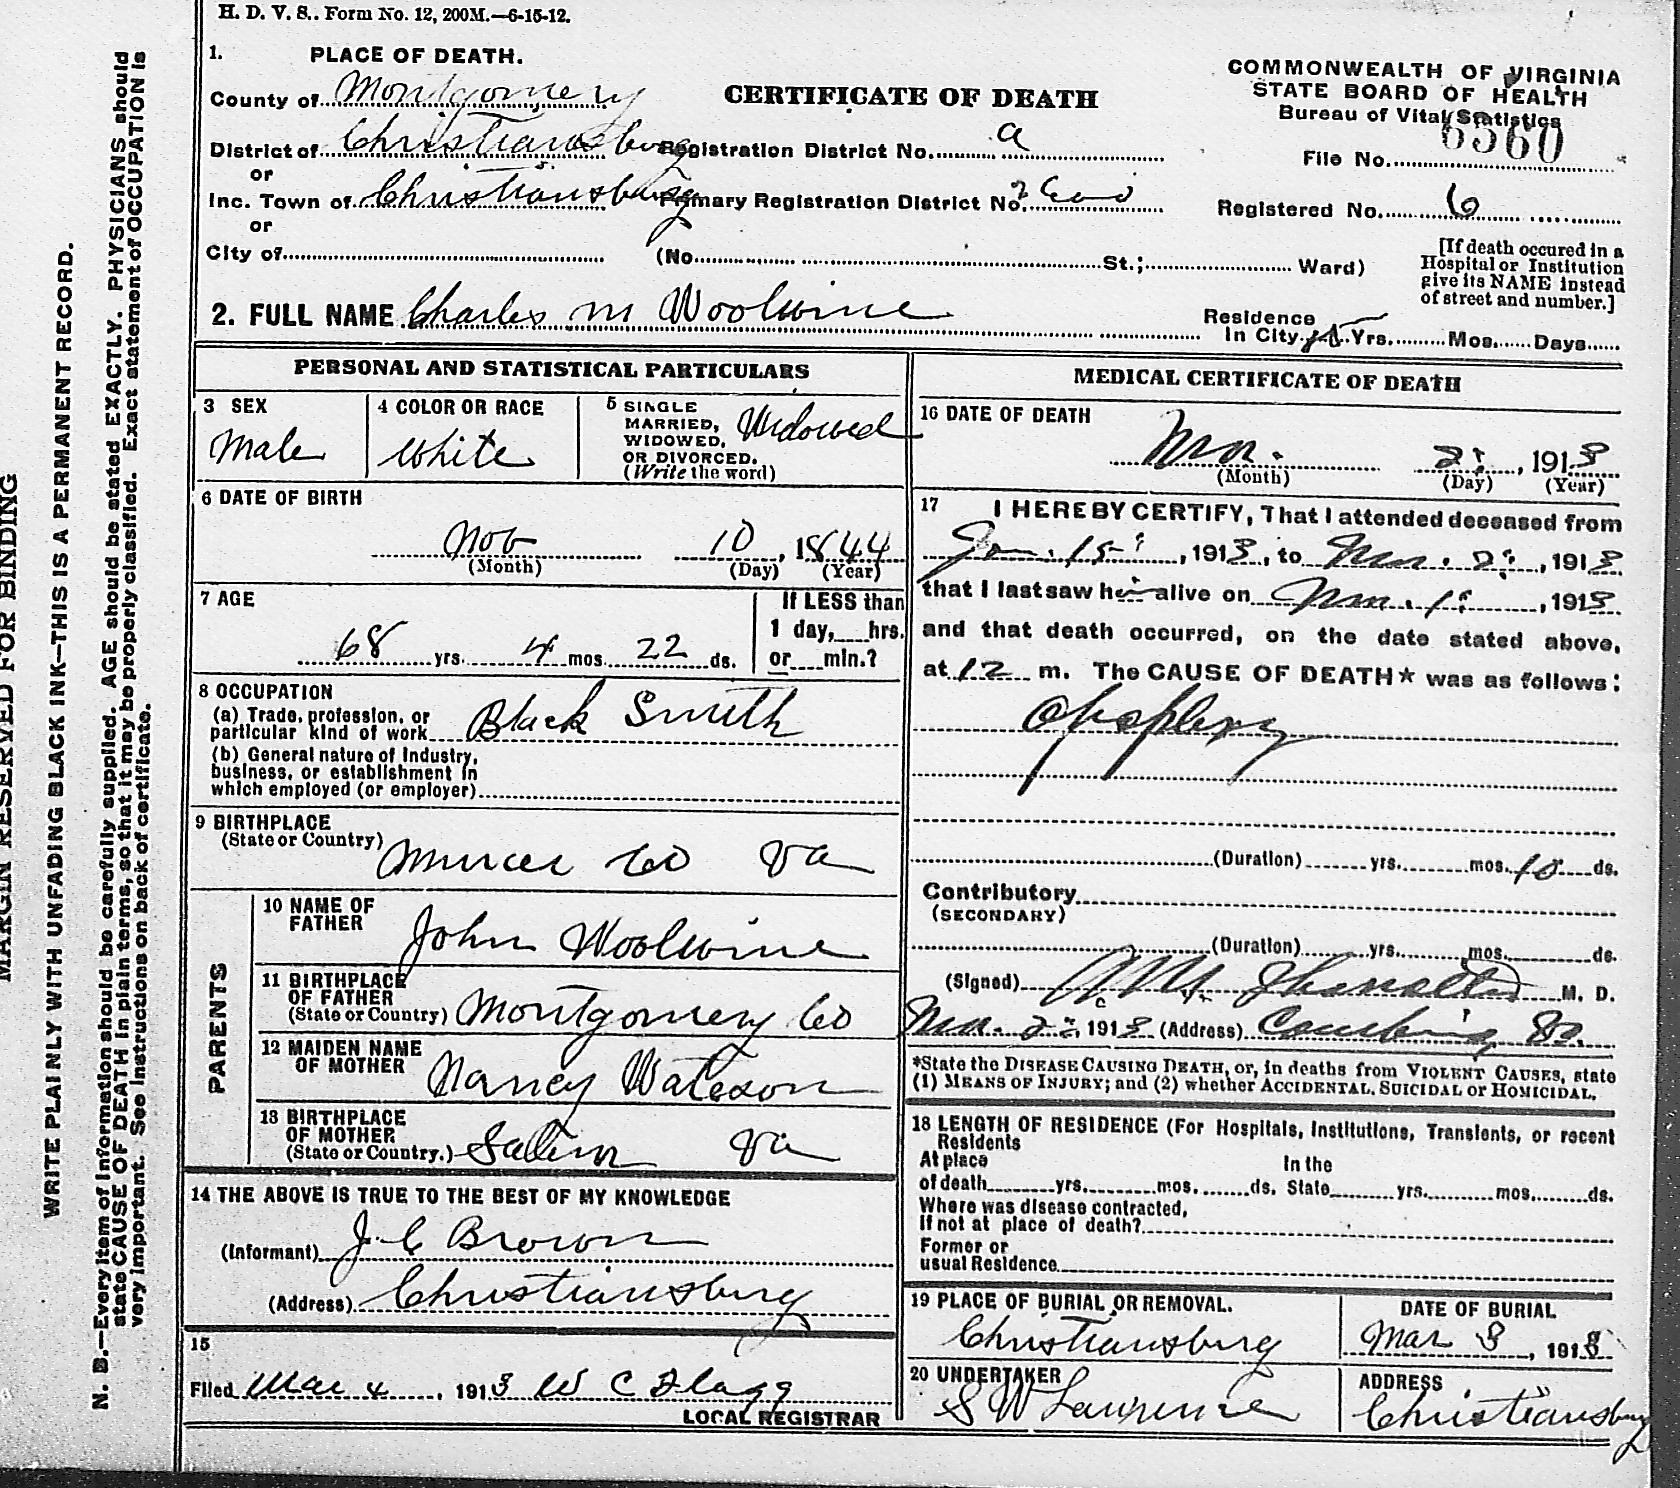 H. D. V. S.. Form No. 12, 200M.—6-15-12.
1. PLACE OF DEATH.
County of Montgomery
District of Christiansburg
or
Inc. Town of Christiansburg
or
City of
CERTIFICATE OF DEATH
Registration District No. a
Primary Registration District No.
(No. St.; Ward)
COMMONWEALTH OF VIRGINIA
STATE BOARD OF HEALTH
Bureau of Vital Statistics
File No. 6560
Registered No. 6
[If death occured in a
Hospital or Institution
give its NAME instead
of street and number.]
2. FULL NAME Charles M Woolwine
Residence
In City 15 Yrs. Mos. Days
PERSONAL AND STATISTICAL PARTICULARS
3 SEX
Male
4 COLOR OR RACE
White
5 SINGLE
MARRIED,
WIDOWED,
OR DIVORCED.
(Write the word)
Widowed
6 DATE OF BIRTH
Nov 10, 1844
(Month) (Day) (Year)
7 AGE
68 yrs. 4 mos. 22 ds.
If LESS than
1 day, hrs.
or min.?
8 OCCUPATION
(a) Trade, profession, or
particular kind of work Black Smith
(b) General nature of Industry,
business, or establishment in
which employed (or employer)
9 BIRTHPLACE
(State or Country) Mercer Co Va
PARENTS
10 NAME OF
FATHER John Woolwine
11 BIRTHPLACE
OF FATHER
(State or Country) Montgomery Co
12 MAIDEN NAME
OF MOTHER Nancy Watson
13 BIRTHPLACE
OF MOTHER
(State or Country.) Salem Va
14 THE ABOVE IS TRUE TO THE BEST OF MY KNOWLEDGE
(Informant) J. C Brown
(Address) Christiansburg
15
Filed Mar 4, 1913 W C Flagg
LOCAL REGISTRAR
MEDICAL CERTIFICATE OF DEATH
16 DATE OF DEATH
Mar. 2, 1913
(Month) (Day) (Year)
17 I HEREBY CERTIFY, That I attended deceased from
Jan. 15, 1913, to Mar. 2, 1913
that I last saw him alive on Mar. 1, 1913
and that death occurred, on the date stated above,
at 12 m. The CAUSE OF DEATH★ was as follows:
Apoplexy
(Duration) yrs. mos. 10 ds.
Contributory
(SECONDARY)
(Duration) yrs. mos. ds.
(Signed) M. D.
Mar. 2, 1913 (Address) Va.
*State the DISEASE CAUSING DEATH, or, in deaths from VIOLENT CAUSES, state
(1) MEANS OF INJURY; and (2) whether ACCIDENTAL, SUICIDAL or HOMICIDAL.
18 LENGTH OF RESIDENCE (For Hospitals, Institutions, Transients, or recent
Residents
At place In the
of death yrs. mos. ds. State yrs. mos. ds.
Where was disease contracted,
If not at place of death?
Former or
usual Residence
19 PLACE OF BURIAL OR REMOVAL.
Christiansburg
DATE OF BURIAL
Mar 3, 1913
20 UNDERTAKER
S W Lawrence
ADDRESS
Christiansburg
MARGIN RESERVED FOR BINDING
WRITE PLAINLY WITH UNFADING BLACK INK—THIS IS A PERMANENT RECORD.
N. B.—Every item of information should be carefully supplied. AGE should be stated EXACTLY. PHYSICIANS should
state CAUSE OF DEATH in plain terms, so that it may be properly classified. Exact statement of OCCUPATION is
very important. See instructions on back of certificate.